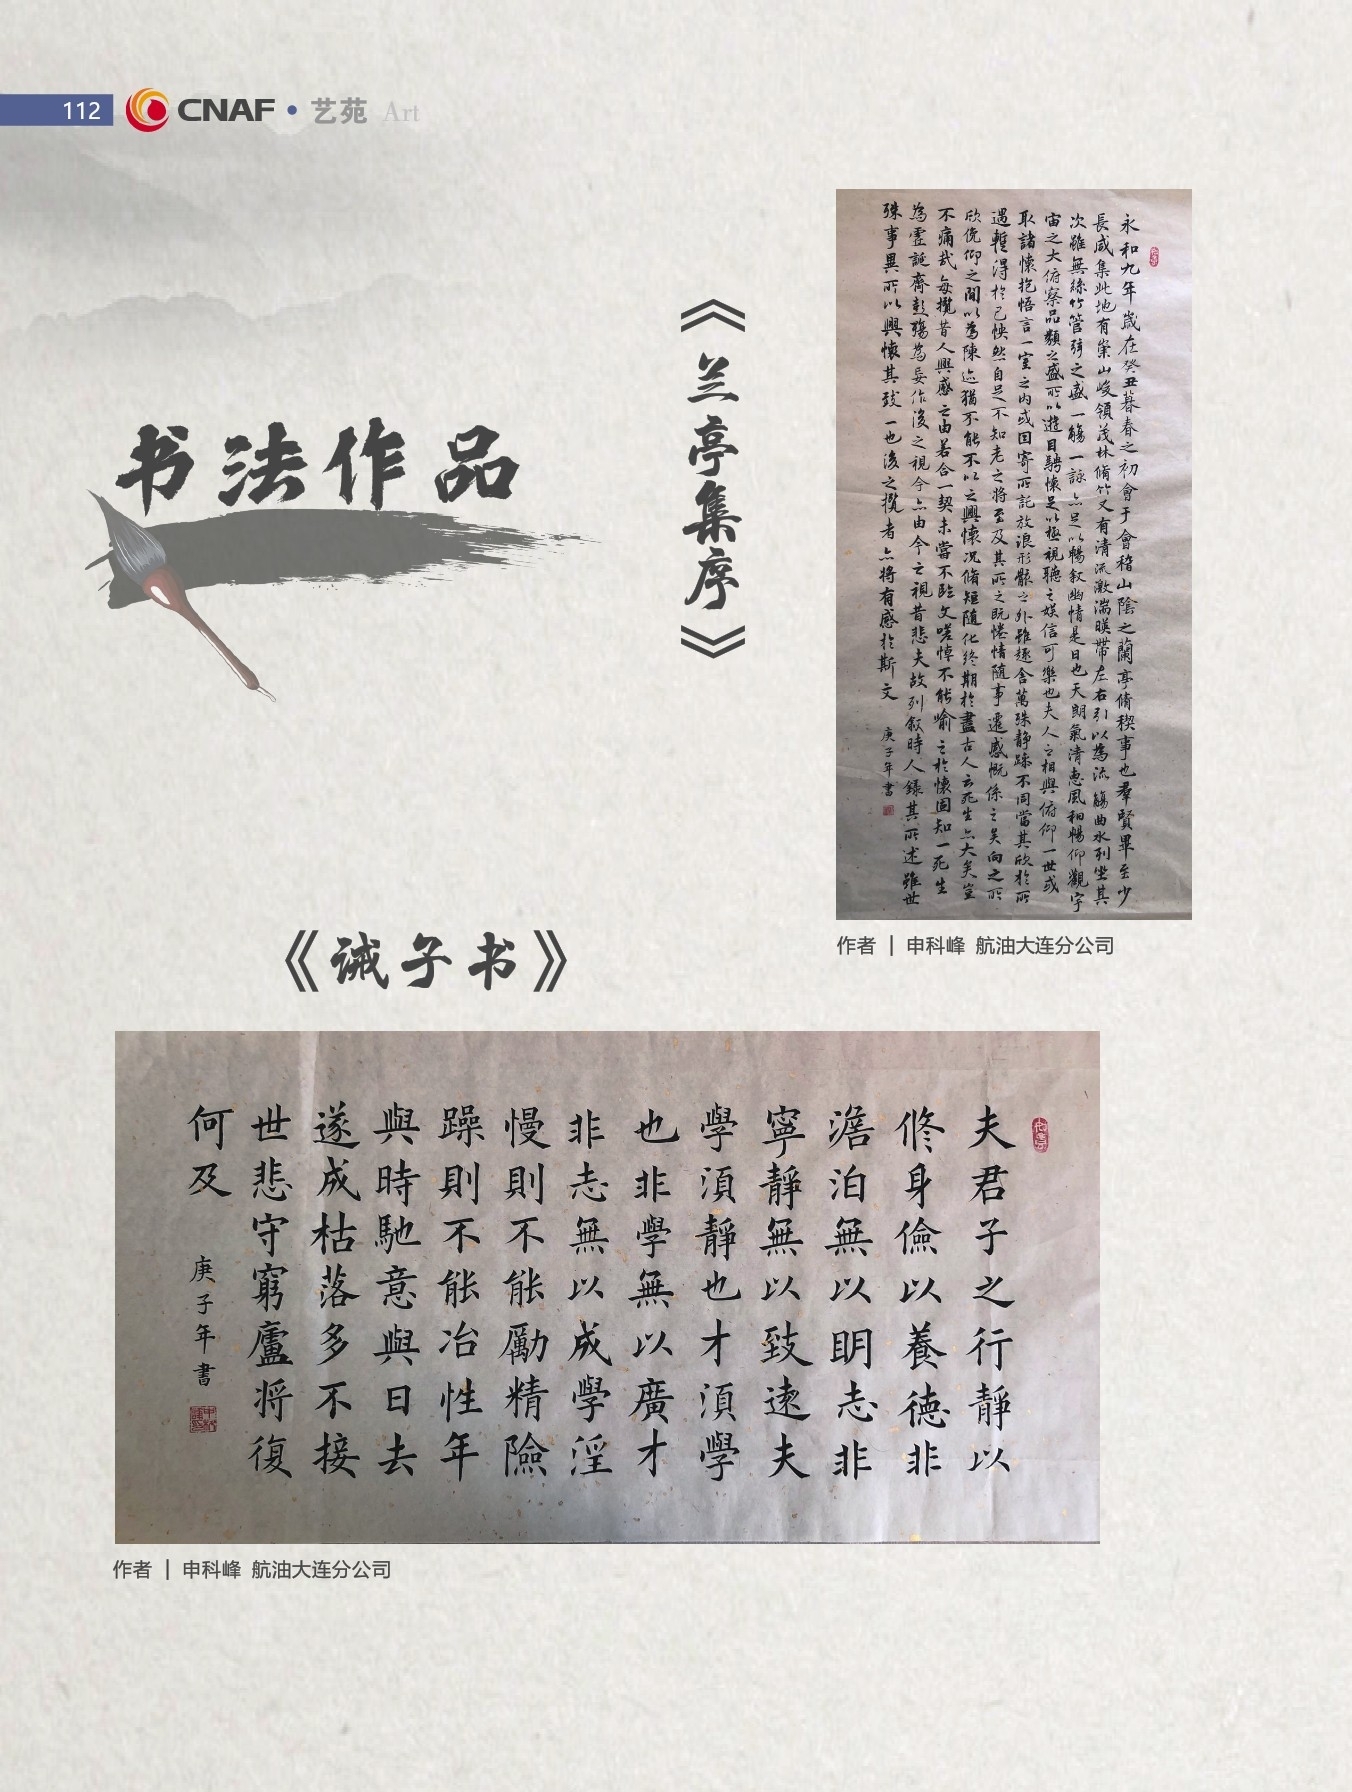 112 CNAF · 艺苑 Art
书法作品
《兰亭集序》
永和九年歲在癸丑暮春之初會于會稽山陰之蘭亭脩稧事也羣賢畢至少
長咸集此地有崇山峻領茂林脩竹又有清流激湍暎帶左右引以為流觴曲水列坐其
次雖無絲竹管弦之盛一觴一詠亦足以暢叙幽情是日也天朗氣清惠風和暢仰觀宇
宙之大俯察品類之盛所以遊目騁懷足以極視聽之娛信可樂也夫人之相與俯仰一世或
取諸懷抱悟言一室之內或因寄所託放浪形骸之外雖趣舍萬殊靜躁不同當其欣於所
遇暫得於己怏然自足不知老之將至及其所之既惓情隨事遷感慨係之矣向之所
欣俛仰之閒以為陳迹猶不能不以之興懷況脩短隨化終期於盡古人云死生亦大矣豈
不痛哉每攬昔人興感之由若合一契未嘗不臨文嗟悼不能喻之於懷固知一死生
為虛誕齊彭殤為妄作後之視今亦由今之視昔悲夫故列叙時人錄其所述雖世
殊事異所以興懷其致一也後之攬者亦將有感於斯文
庚子年書
作者 | 申科峰 航油大连分公司
《诫子书》
夫君子之行靜以
修身儉以養德非
澹泊無以明志非
寧靜無以致遠夫
學須靜也才須學
也非學無以廣才
非志無以成學淫
慢則不能勵精險
躁則不能冶性年
與時馳意與日去
遂成枯落多不接
世悲守窮廬將復
何及
庚子年書
作者 | 申科峰 航油大连分公司